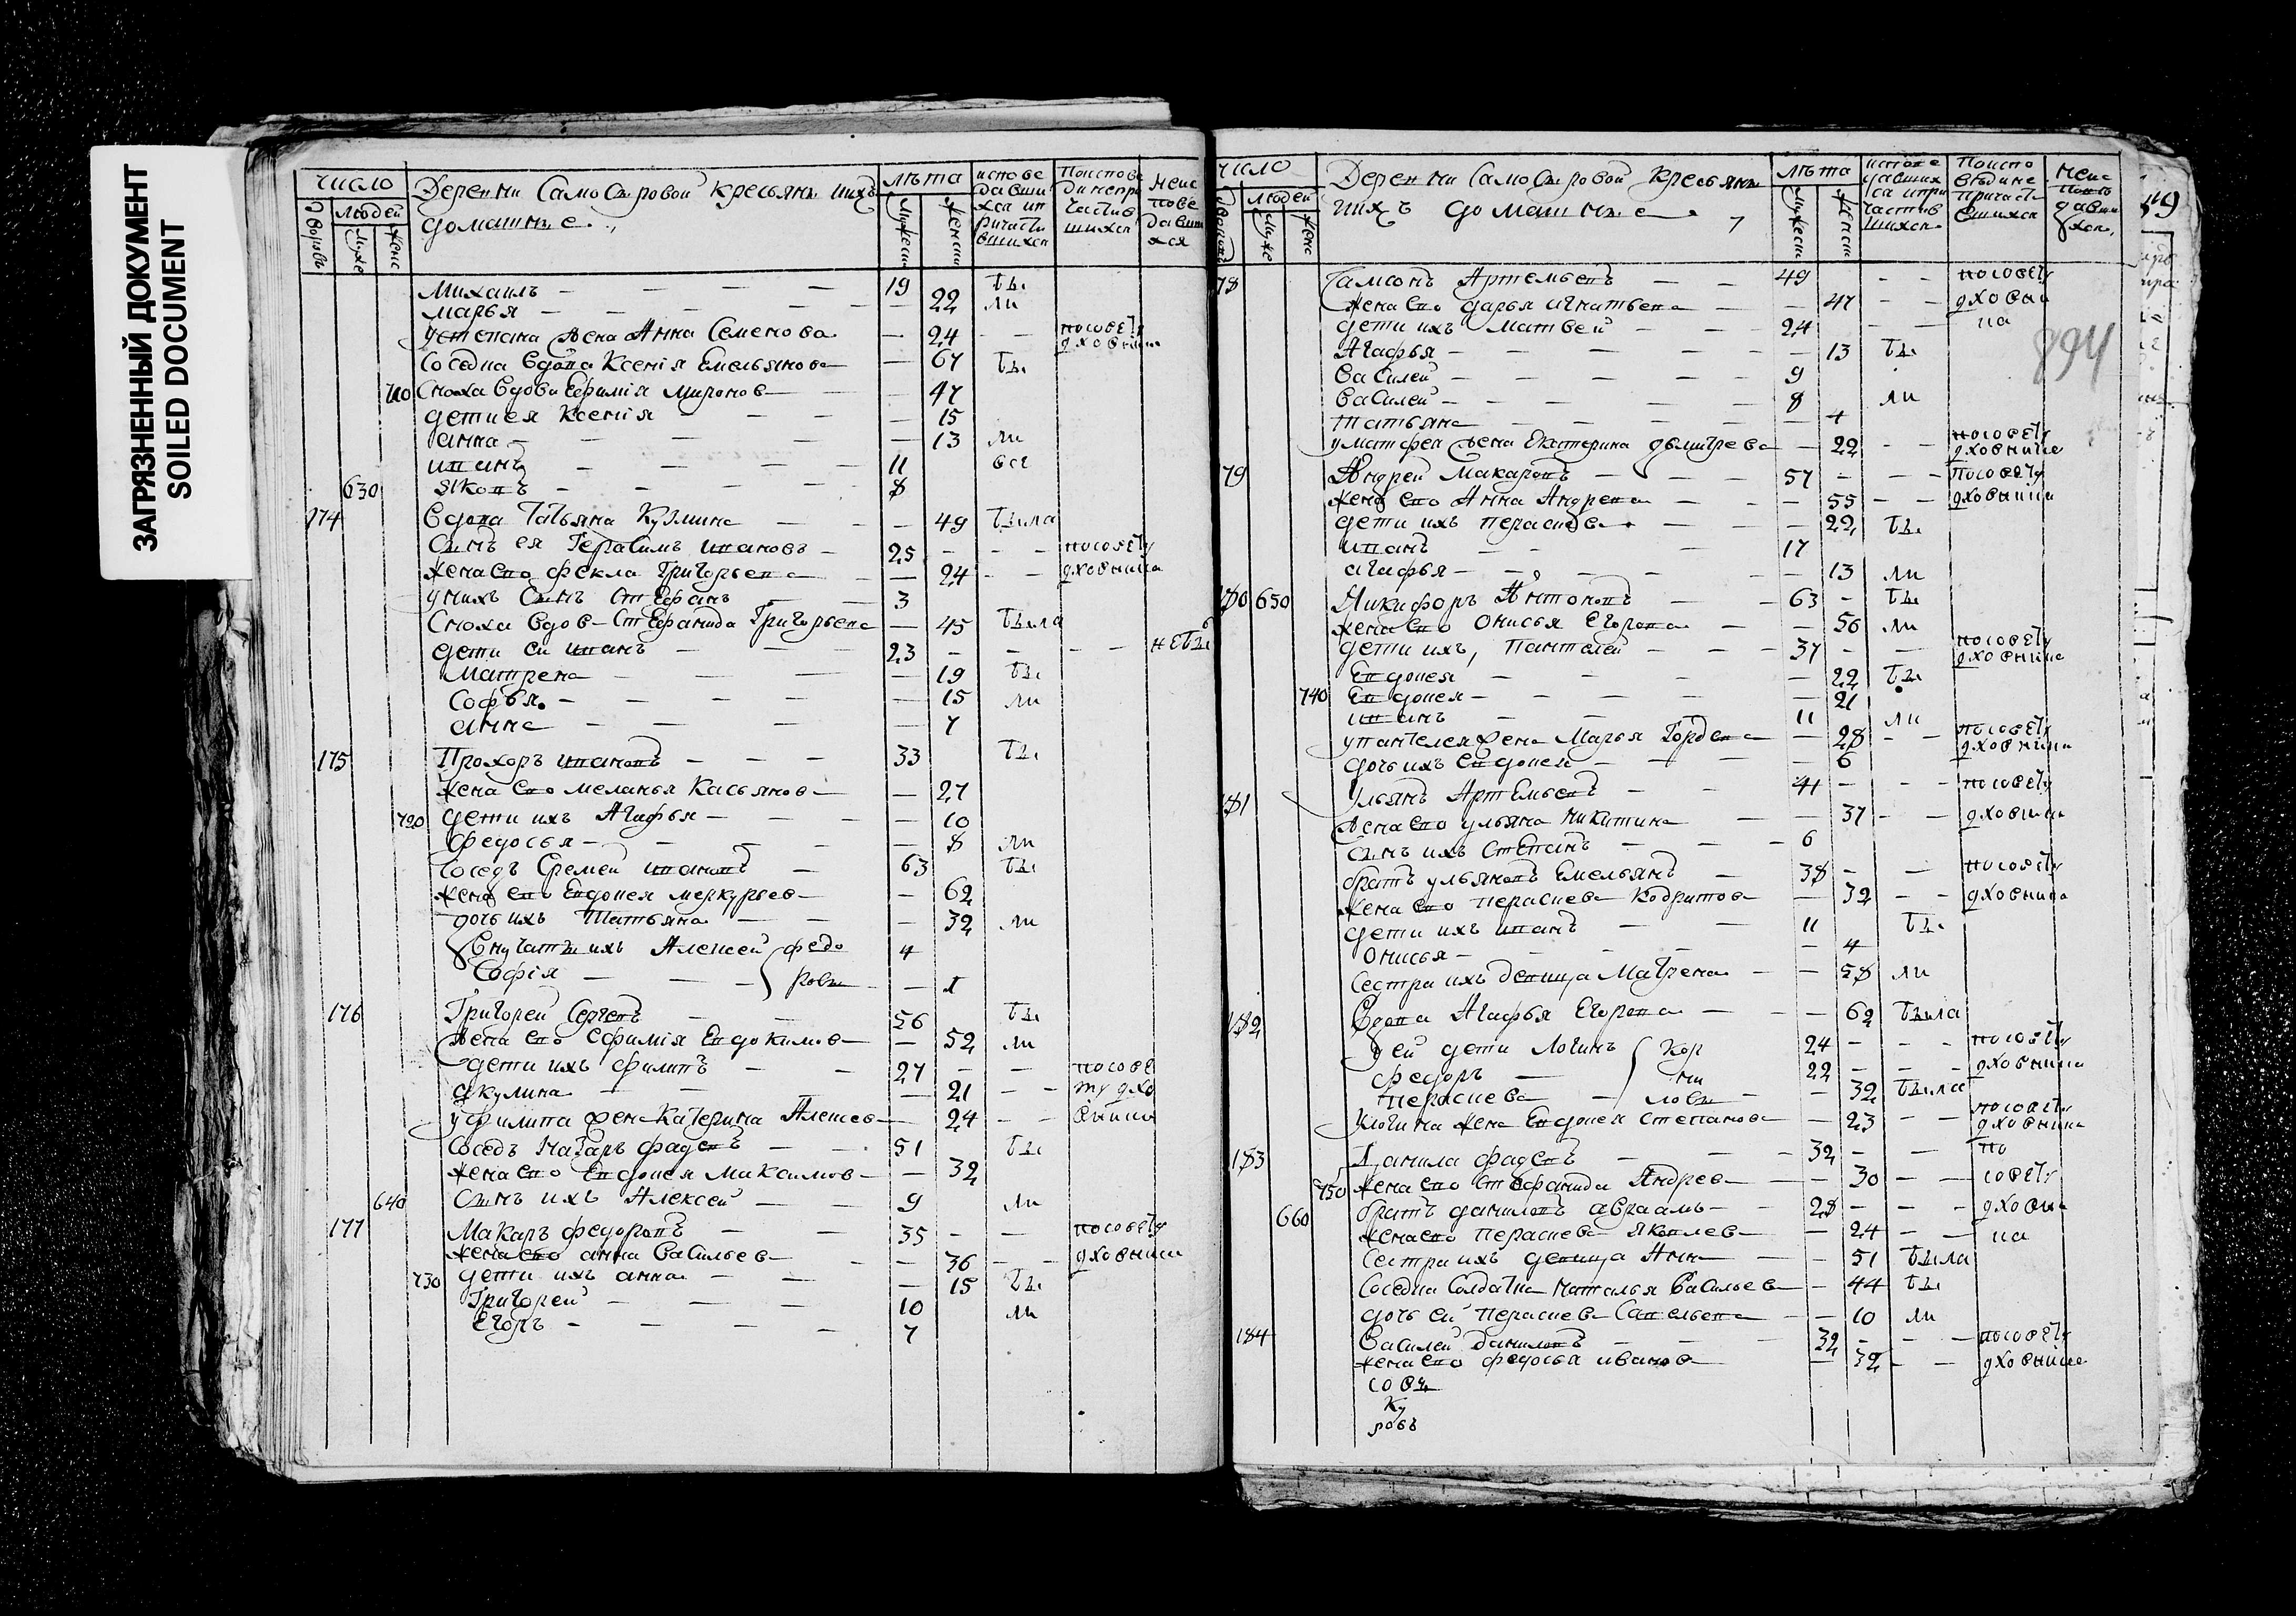 ЗАГРЯЗНЕННЫЙ ДОКУМЕНТ
SOILED DOCUMENT
число
Деревни Самосыровой кресьянъ ихъ
домашные.
лѣта
людей
дворовъ
муже
женс
мужеск
женски
исповедавшихся ипричастившихся
Поисповединепричастившихся
неисповедавшихся
Михаилъ — 19 бы
Марья — 22 ли
уСтепана жена Анна Семенова — 24 посовету
духовника
Соседка вдова Ксенiя Емельянова — 67 бы
710 Сноха вдова Ефимiя Миронов — 47
дети ея Ксенiя — 15
анна — 13 ли
иванъ — 11 все
630 Яковъ — 8
174 Вдова Татьяна Кузмина — 49 была
Сынъ ея Герасимъ ивановъ — 25 посовету
жена ево фекла Григорьева — 24 духовника
у нихъ Сынъ Стефанъ 3
Сноха вдов Стефанида Григорьева — 45 была
дети ей иванъ — 23 небы
Матрена — 19 бы
Софья — 15 ли
анна — 7
175 Прохоръ ивановъ — 33 бы
жена ево меланья Касьянов — 27
720 дети ихъ Агафья — 10
федосья — 8 ли
Соседъ Еремей ивановъ — 63 бы
жена ево Евдокея меркурьев — 62
дочь ихъ Татьяна — 32 ли
Внучаты ихъ Алексей федо 4
Софiя — ровы — 1
176 Григорей Сергевъ 56 бы
жена ево Ефимiя Евдокимов — 52 ли
дети ихъ филипъ — 27 посове
акулина — 21 ту дхо
у филипа жена Катерина Алексев — 24 вника
Соседъ Назаръ фадевъ — 51 бы
жена ево Евдокея Максимов — 32
640 Сынъ ихъ Алексей — 9 ли
177 Макаръ федоровъ — 35 посовету
жена ево анна Васильев — 36 дховника
730 дети ихъ анна — 15 бы
Григорей — 10 ли
Егоръ — 7
число
Деревни Самосыровой кресьянъ
ихъ домашные
лѣта
людей
муже
женс
894
78 Самсонъ Артемьевъ — 49 посовету
жена ево дарья игнатьева — 47 дховни
дети ихъ Матвей — 24 ка
Агафья — 13 бы
Василей — 9
Василей — 8 ли
татьяна — 4
у матфея жена Екатерина дмитрева — 22 посовету
дховника
79 Андрей Макаровъ — 57 посовету
жена ево Анна Андрева — 55 дховника
дети ихъ Парасκева — 22 бы
иванъ — 17
агафья — 13 ли
180 650 Никифоръ Антоновъ — 63 бы
жена ево Онисья Егорова — 56 ли
дети ихъ, Пантелей — 37 посовету
дховника
Евдокея — 22 бы
740 Евдокея — 21
иванъ — 11 ли
у пантелея жена Марья Гордева — 28 посовету
дховника
дочь ихъ Евдокея — 6
181 Ульянъ Артемьевъ — 41 посовету
жена ево ульяна Никитина — 37 дховника
сынъ ихъ Степанъ — 6
братъ ульяновъ Емельянъ — 38 посовету
жена ево Перасκева Кодратов — 32 дховника
дети ихъ иванъ — 11 бы
Онисья — 4
сестра ихъ девица Матрена — 58 ли
182 Вдова Агафья Егорева — 62 была
у ей дети Логинъ Кор 24 посовету
федоръ — ни 22 дховника
Перасκева — ловы 32 была
у логина жена Евдокея Степанова — 23 посовету
дховника
183 Данила фадевъ — 32 по
750 жена ево Стефанида Андрев — 30 совету
660 братъ даниловъ авраамъ — 28 дховни
жена ево Перасκева Яковлев — 24 ка
Сестра ихъ девица Анн — 51 была
Соседка Солдатка Наталья Васильев — 44 бы
дочь ей Перасκева Савельева — 10 ли
184 Василей Даниловъ — 32 посовету
жена ево федосья иванов — 32 дховника